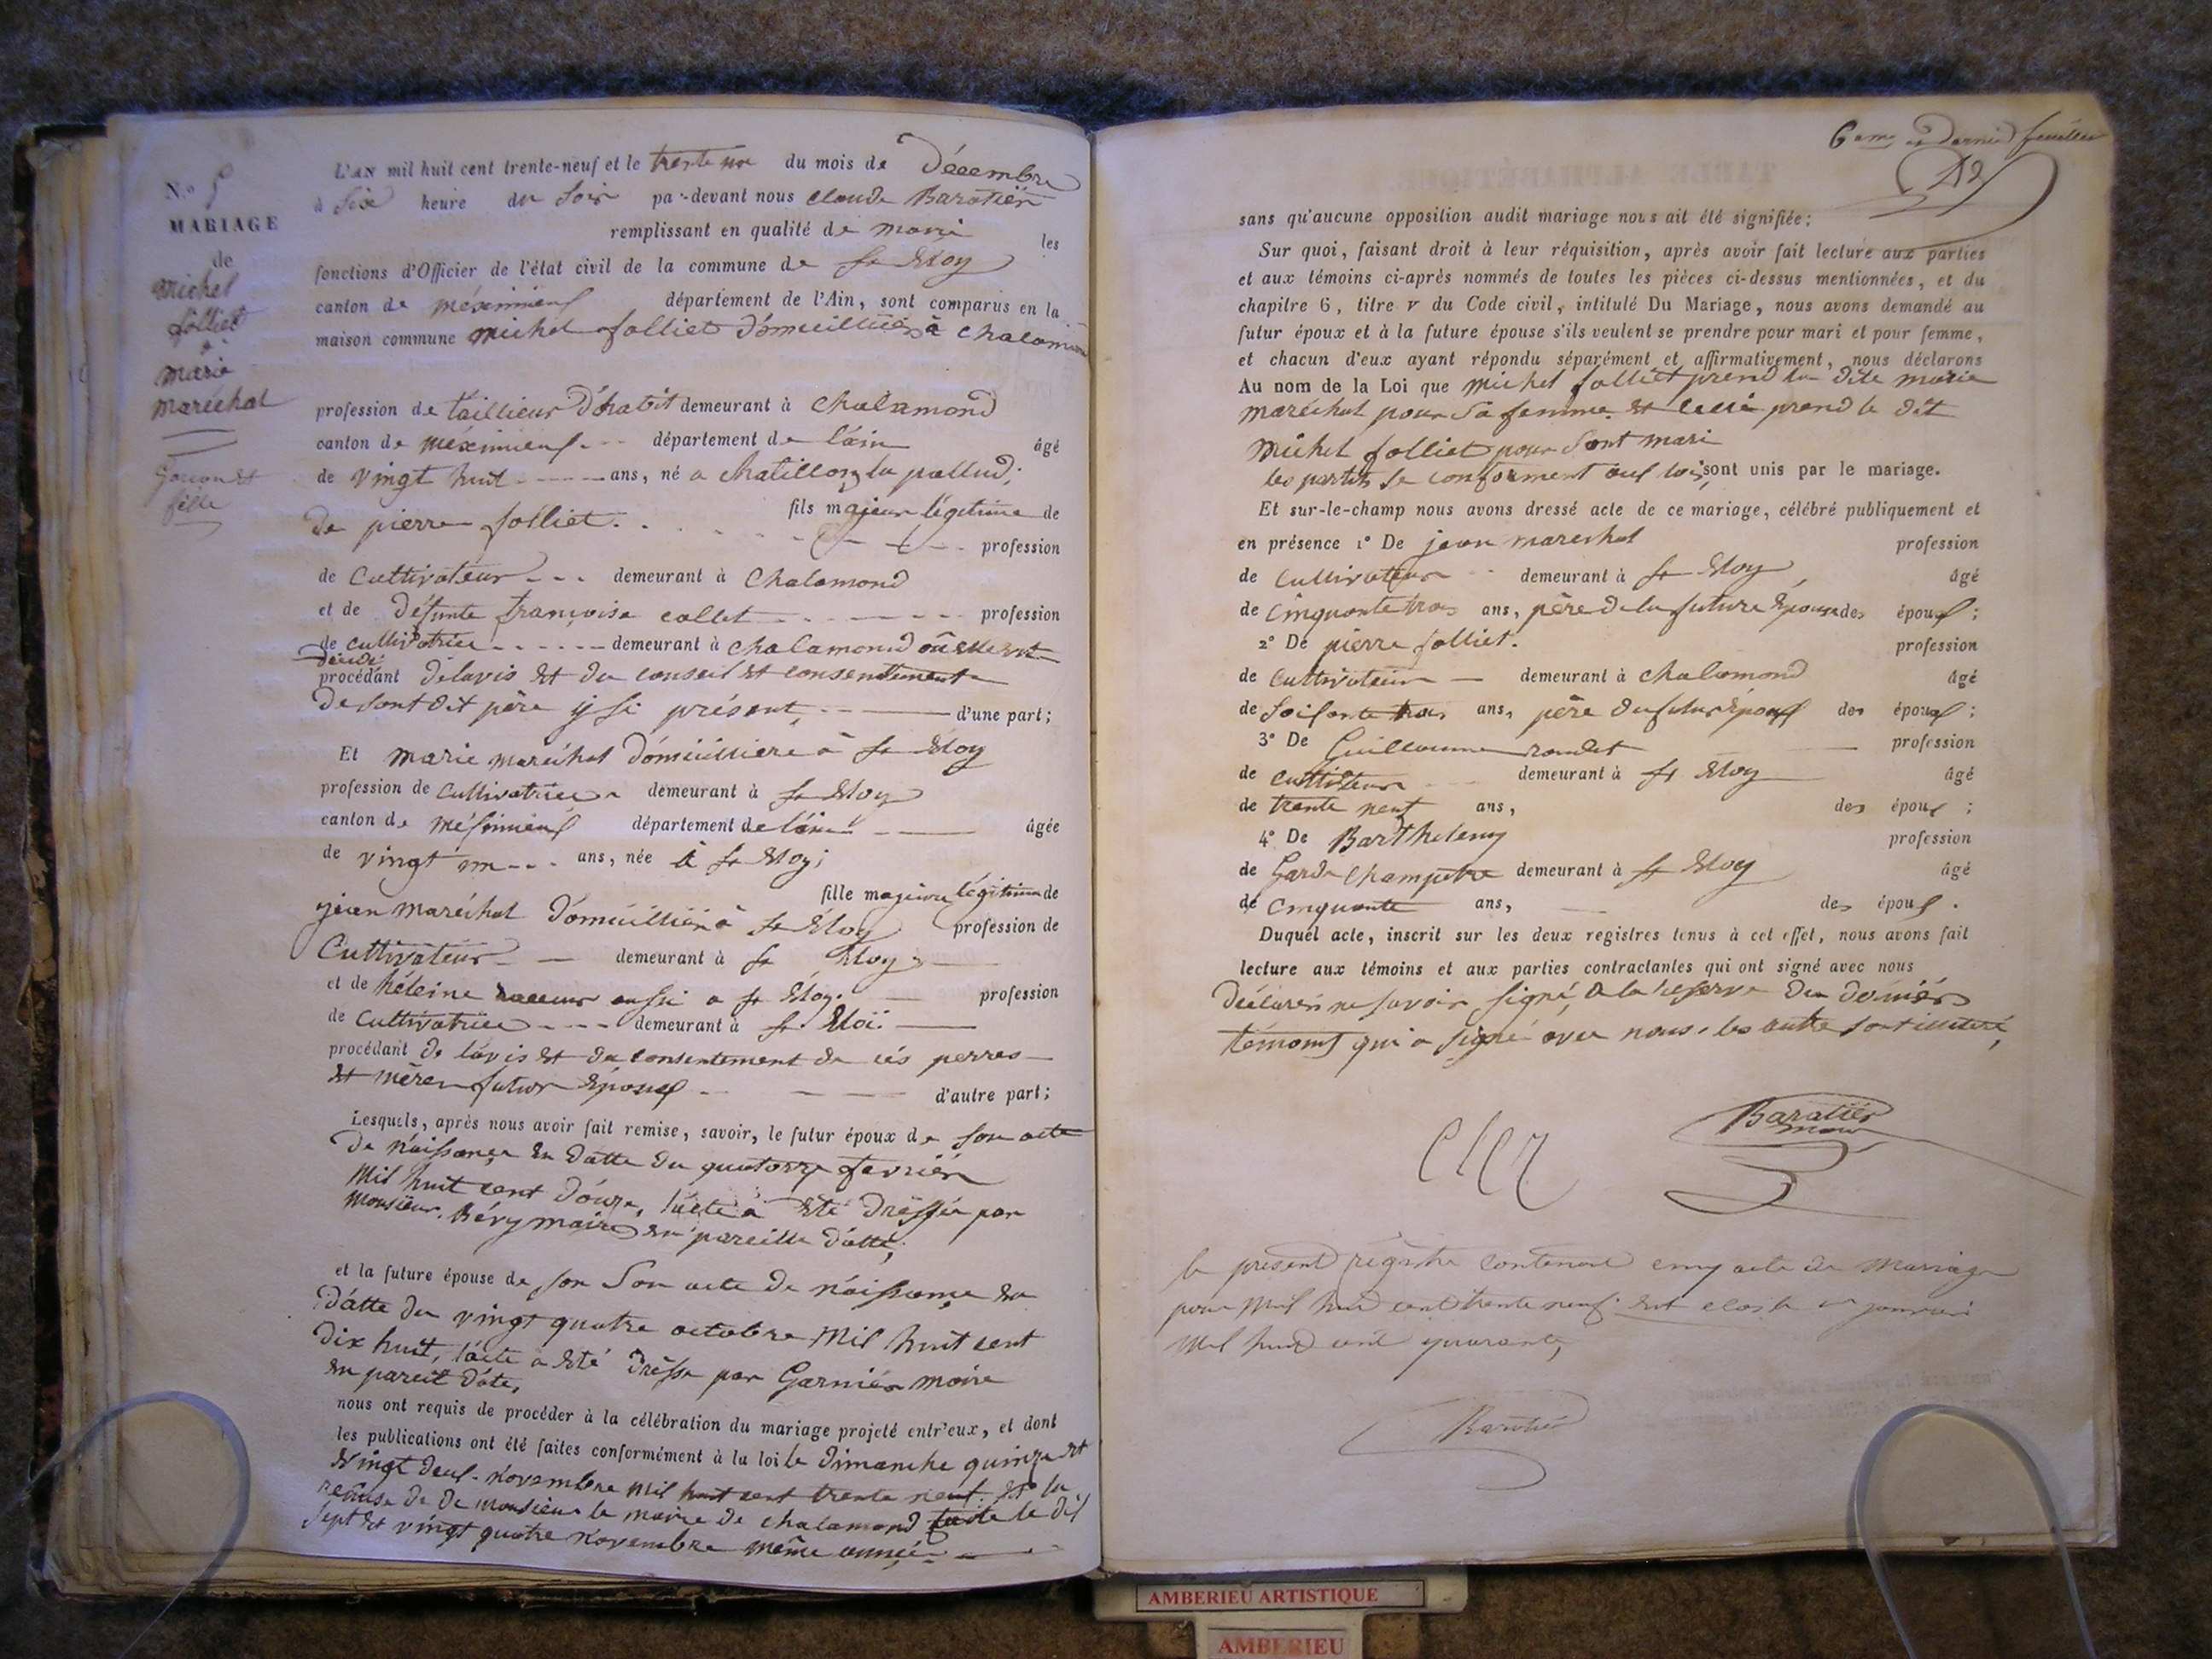 N.º 5
MARIAGE
de
michel
folliet
&
marie
marechal
Garçon et
fille
L'AN mil huit cent trente-neuf et le trente un du mois de Décembre
à Six heure du Soir par-devant nous claude Baratier
remplissant en qualité de maire les
fonctions d'Officier de l'état civil de la commune de St Eloy
canton de méximieux département de l'Ain, sont comparus en la
maison commune michel folliet domicillier à chalamond
profession de taillieur d'habit demeurant à chalamond
canton de méximieux département de l'ain âgé
de vingt huit ans, né a chatillon la pallud;
fils majeur légitime de
de pierre folliet.
profession
de Cultivateur demeurant à Chalamond
et de défunte françoise collet profession
de cultivatrice demeurant à chalamond où elle est
décidé
procédant de lavis et du conseil et consentement
de sont dit père ysi présent, d'une part;
Et marie maréchal domicilliere à St Eloy
profession de cultivatrice demeurant à St Eloy
canton de meximieux département de l'ain âgée
de vingt un ans, née à St Eloy;
fille majeure légitime de
jean maréchal domicillier à St Eloy profession de
Cultivateur demeurant à St Eloy
et de héleine aussi a St Eloy. profession
de Cultivatrice demeurant à St Eloi.
procédant de lavis et du consentement de cés perres
et mères futur Epouse d'autre part;
Lesquels, après nous avoir fait remise, savoir, le futur époux de son acte
de naissance en datte du quatorze fevrier
Mil huit cent douze, l'acte a eté dressée par
Monsieur Béry maire en pareille datte;
et la future épouse de son Son acte de naissance en
datte du vingt quatre octobre Mil huit cent
dix huit, l'acte a eté dresse par Garnier maire
en pareil date,
nous ont requis de procéder à la célébration du mariage projeté entr'eux, et dont
les publications ont été faites conformément à la loi le dimanche quinze et
vingt deux novembre mil huit cent trente neuf. et la
remise de de monsieur le maire de chalamond faite le dix
sept et vingt quatre novembre même année
6eme et Dernier feuillet
sans qu'aucune opposition audit mariage nous ait été signifiée;
Sur quoi, faisant droit à leur réquisition, après avoir fait lecture aux parties
et aux témoins ci-après nommés de toutes les pièces ci-dessus mentionnées, et du
chapitre 6, titre v du Code civil, intitulé Du Mariage, nous avons demandé au
futur époux et à la future épouse s'ils veulent se prendre pour mari et pour femme,
et chacun d'eux ayant répondu séparément et affirmativement, nous déclarons
Au nom de la Loi que michel folliet prend la dite marie
maréchal pour sa femme et celle prend le dit
michel folliet pour sont mari
les partits se conforment aux lois, sont unis par le mariage.
Et sur-le-champ nous avons dressé acte de ce mariage, célébré publiquement et
en présence 1º De jean marechal profession
de Cultivateur demeurant à St Eloy, âgé
de Cinquante trois ans, père de la future épouse des époux;
2º De pierre folliet. profession
de Cultivateur demeurant à chalamond âgé
de Soisante trois ans, père du futur Epoux des époux;
3º De Guillaume rondet profession
de cultivateur demeurant à St Eloy âgé
de trente neuf ans, des époux;
4º De Barthelemy profession
de Garde Champetre demeurant à St Eloy âgé
de Cinquante ans, des époux.
Duquel acte, inscrit sur les deux registres tenus à cet effet, nous avons fait
lecture aux témoins et aux parties contractantes qui ont signé avec nous
déclarés ne savoir signé, a la reserve du dernier
témoins qui a signé avec nous, les autre sont illiteré,
Baratier
maire
le présent régistre contenant cinq acte de Mariage
pour Mil huit cent trente neuf est clos le un janvier
Mil huit cent quarante,
Baratier
AMBERIEU ARTISTIQUE
AMBERIEU